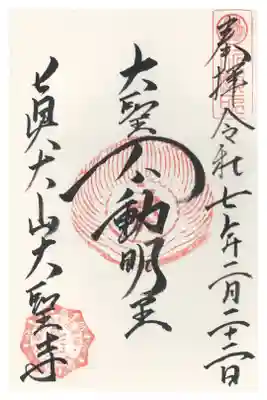 奉拝 令和七年二月二十二日
大聖不動明王
眞大山大聖寺